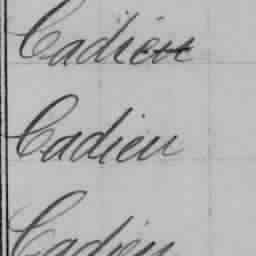 Cadieu
Cadieu
Cadieu